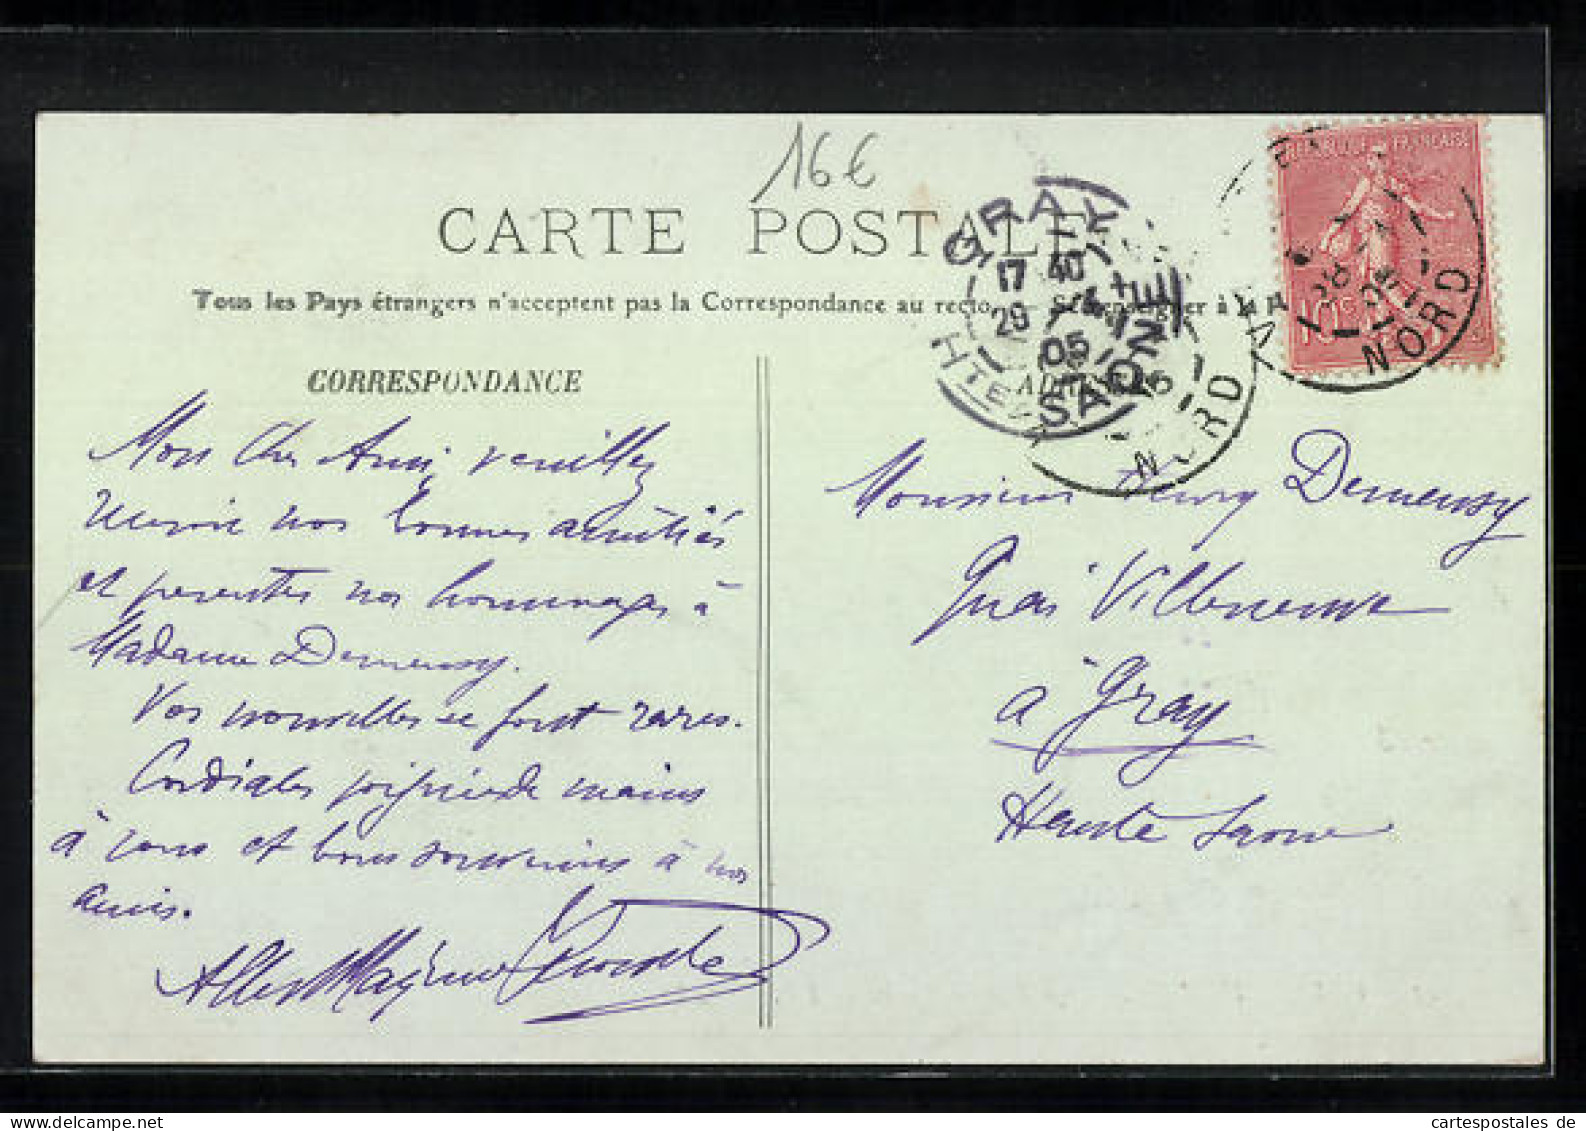 16€
CARTE POSTALE
Tous les Pays étrangers n'acceptent pas la Correspondance au recto. — Se renseigner à la P
CORRESPONDANCE
Mon Cher Ami, veuillez
recevoir nos bonnes amitiés
et présenter nos hommages à
Madame Demeusy.
Vos nouvelles se font rares.
Cordiales poignées de mains
à vous et bons souvenirs à nos
amis.
GRAY
17 40
29
05
HTE SAONE
NORD
REPUBLIQUE FRANCAISE
10c
28
05
NORD
Monsieur Henry Demeusy
Quai Villeneuve
à Gray
Haute Saone
cartespostales de